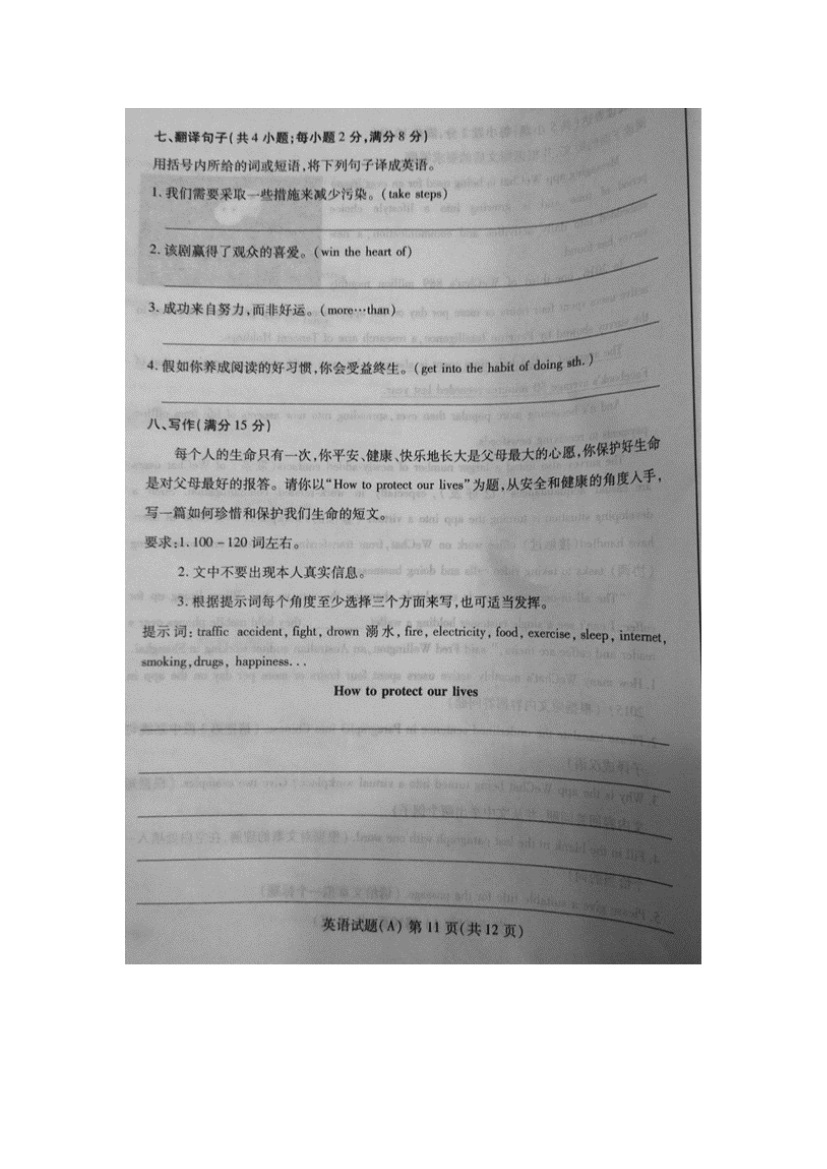 七、翻译句子(共4小题;每小题2分,满分8分)
用括号内所给的词或短语,将下列句子译成英语。
1.我们需要采取一些措施来减少污染。(take steps)
2.该剧赢得了观众的喜爱。(win the heart of)
3.成功来自努力,而非好运。(more…than)
4.假如你养成阅读的好习惯,你会受益终生。(get into the habit of doing sth.)
八、写作(满分15分)
每个人的生命只有一次,你平安、健康、快乐地长大是父母最大的心愿,你保护好生命
是对父母最好的报答。请你以“How to protect our lives”为题,从安全和健康的角度入手,
写一篇如何珍惜和保护我们生命的短文。
要求:1.100-120词左右。
2.文中不要出现本人真实信息。
3.根据提示词每个角度至少选择三个方面来写,也可适当发挥。
提示词:traffic accident, fight, drown 溺水, fire, electricity, food, exercise, sleep, internet,
smoking, drugs, happiness...
How to protect our lives
英语试题(A) 第11页(共12页)